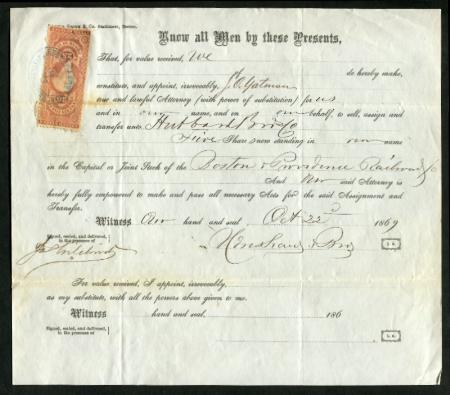 Know all Men by these Presents,
That, for value received, We
do hereby make,
constitute, and appoint, irrevocably, J. O. Yatman
true and lawful Attorney (with power of substitution) for us
and in our name, and on our behalf, to sell, assign and
transfer unto Hubbard Bros & Co
Five Shares now standing in our name
in the Capital or Joint Stock of the Boston & Providence Railroad Co
And our said Attorney is
hereby fully empowered to make and pass all necessary Acts for the said Assignment and
Transfer.
Witness our hand and seal, Oct 22d 1869
Signed, sealed, and delivered,
in the presence of
Henshaw & Bro
L. S.
For value received, I appoint, irrevocably,
as my substitute, with all the powers above given to me.
Witness hand and seal, 186
Signed, sealed, and delivered,
in the presence of
L. S.